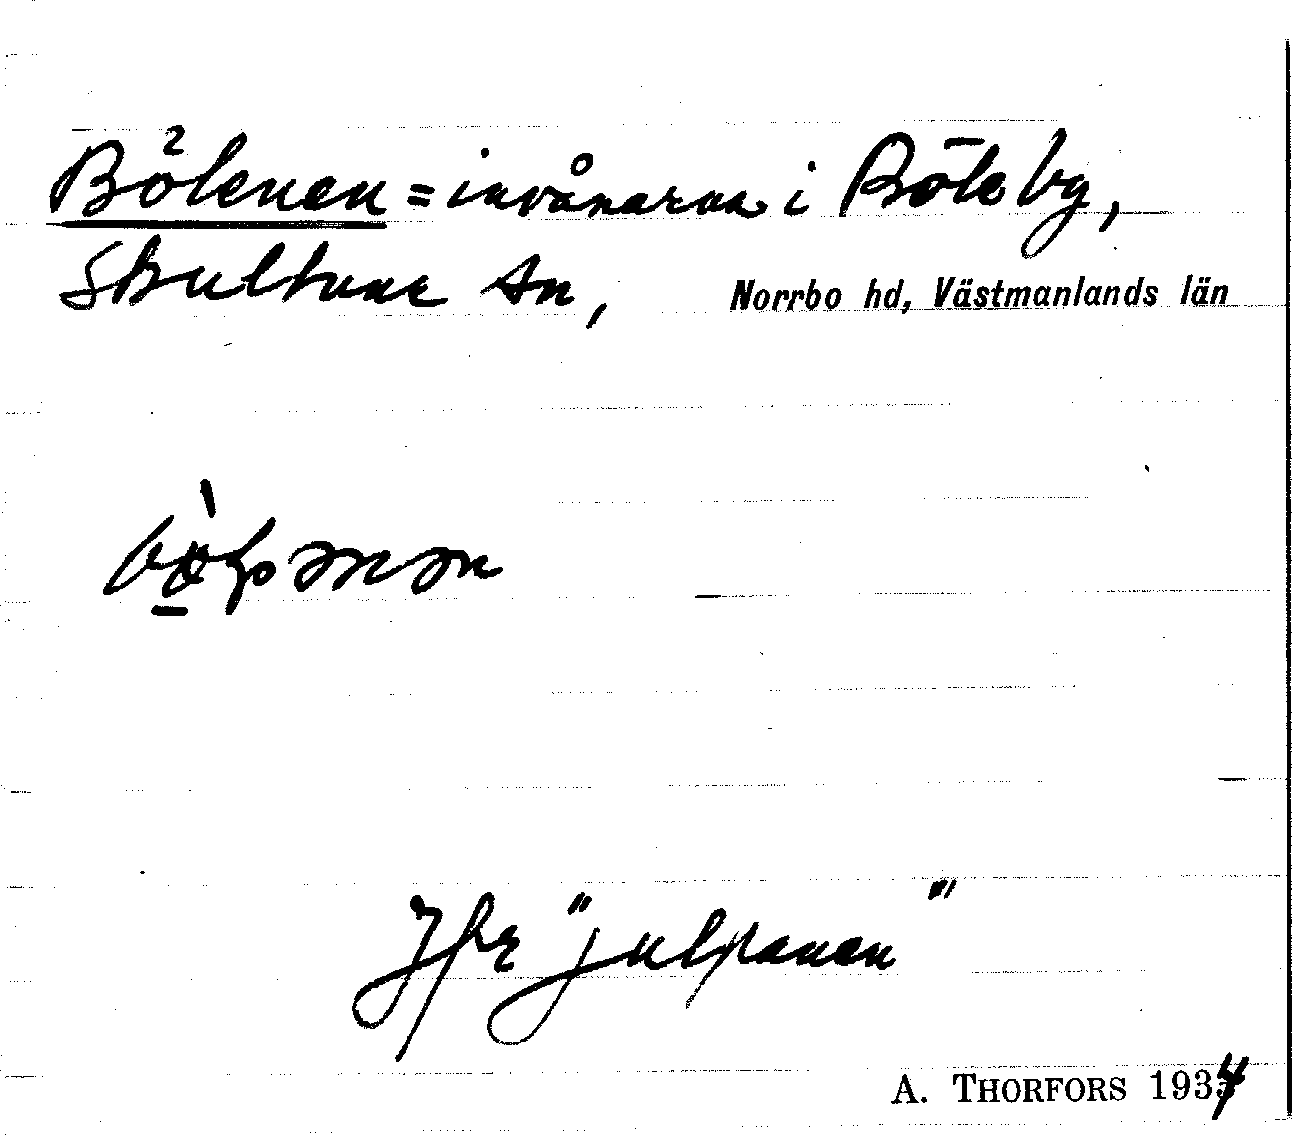 Bölenen = invånarna i Böle by,
Skultuna sn, Norrbo hd, Västmanlands län
Jfr "julpanen"
A. THORFORS 1934